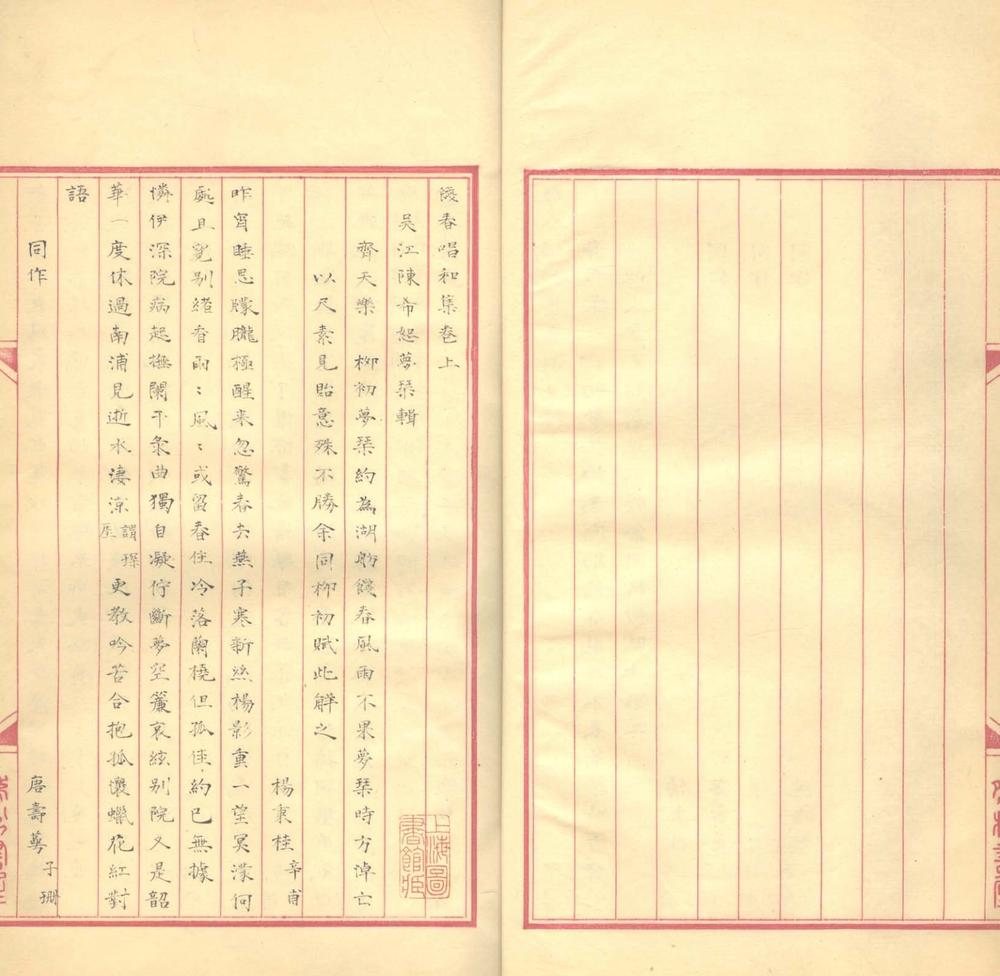 餞春唱和集卷上
吳江陳希恕夢琹輯
齊天樂 柳初夢琹約為湖舫餞春風雨不果夢琹時方悼亡
以尺素見貽意殊不勝余同柳初賦此解之
楊秉桂 辛甫
昨宵睡思朦朧極醒来忽驚春去燕子寒新絲楊影重一望冥濛何
處且寬别緒看雨﹕風﹕或留春住冷落蘭橈但孤佳約已無據
憐伊深院病起撫闌干衆曲獨自凝佇斷夢空簾哀絃别院又是韶
華一度休過南浦見逝水淒涼更教吟苦合抱孤懷蠟花紅對
語
同作 唐壽萼 子珊
上海圖書館藏